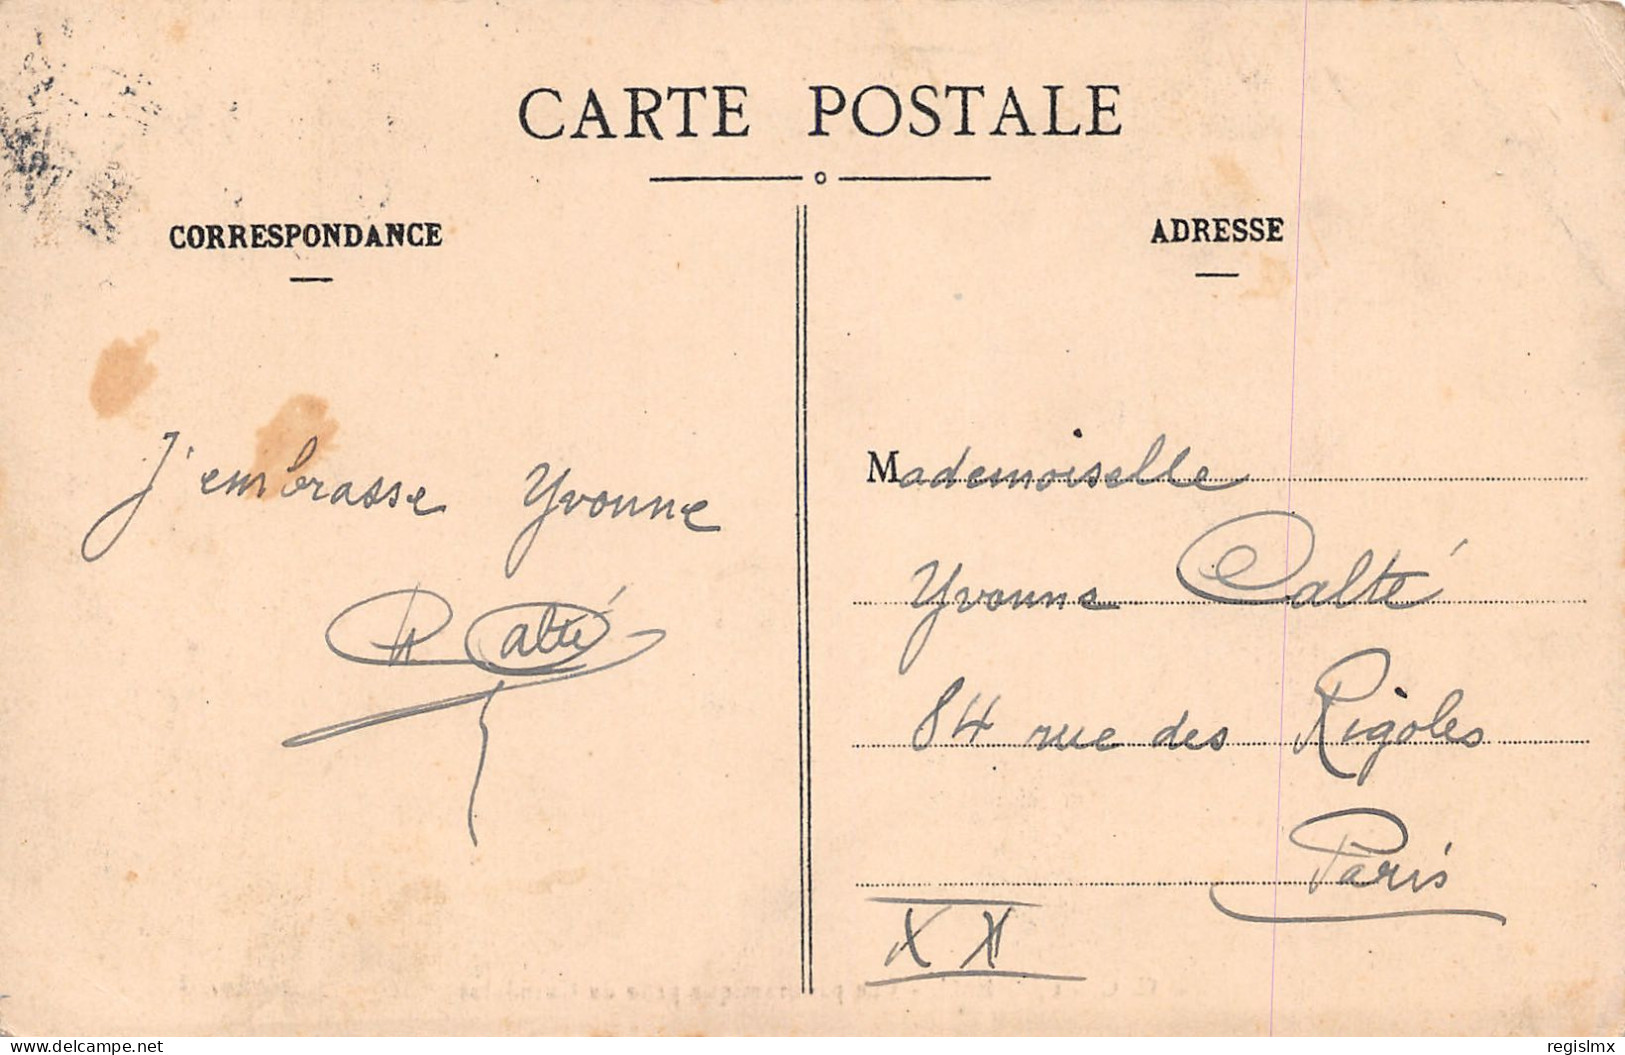 CARTE POSTALE
CORRESPONDANCE
ADRESSE
J'embrasse Yvonne
Calté
Mademoiselle
Yvonne Calté
84 rue des Rigoles
Paris
XX
delcampe.net
regislmx